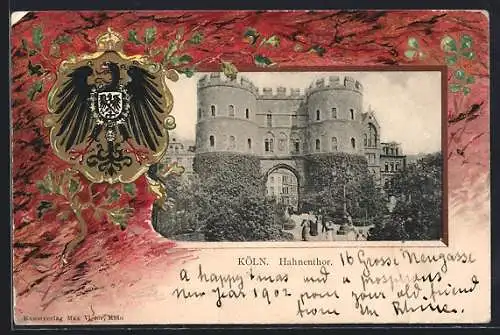 KÖLN. Hahnenthor.
16 Grosse Neugasse
a happy Xmas and a prosperous
new year 1902 from your old friend
from the Rhine.
Kunstverlag Max Köln